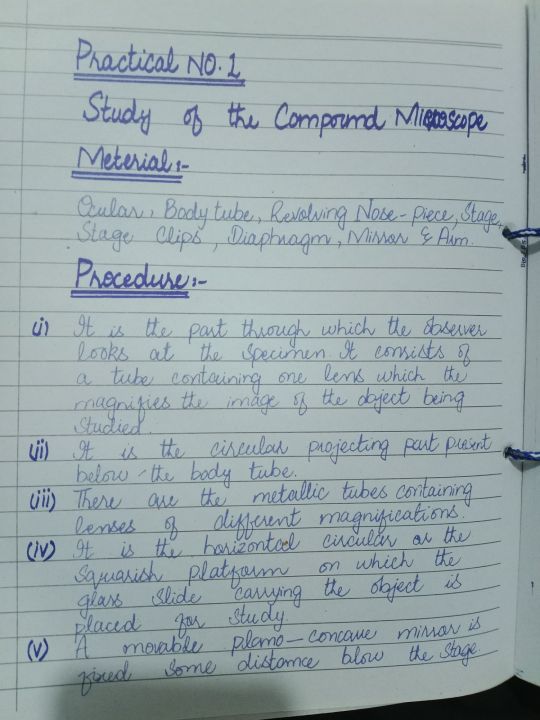 Practical NO. 1
Study of the Compound Microscope
Meterial :-
Ocular, Body tube, Revolving Nose-piece, Stage,
Stage Clips, Diaphragm, Mirror & Arm.
Procedure :-
(i) It is the part through which the observer
looks at the specimen. It consists of
a tube containing one lens which the
magnifies the image of the object being
studied.
(ii) It is the circular projecting part present
below the body tube.
(iii) There are the metallic tubes containing
lenses of different magnifications.
(iv) It is the horizontal circular or the
squarish platform on which the
glass slide carrying the object is
placed for study.
(v) A movable plano-concave mirror is
fixed some distance blow the stage.